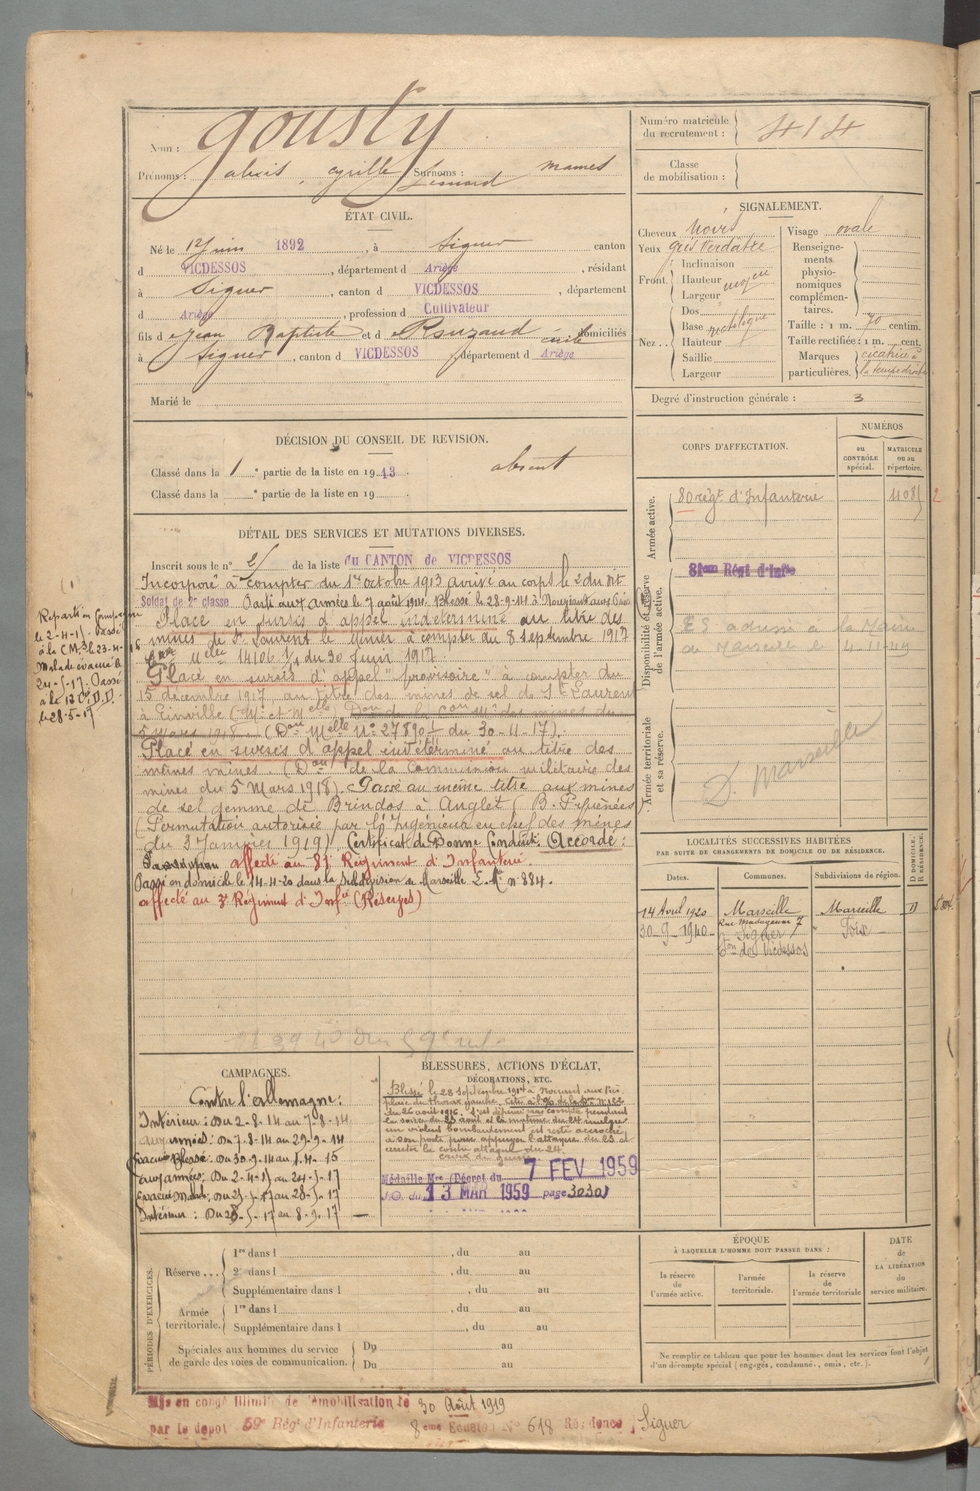 Nom : Gousty
Prénoms : alexis, cyrille Surnoms : mamès
Léonard
Numéro matricule
du recrutement : 414
Classe
de mobilisation :
ÉTAT CIVIL.
Né le 12 Juin 1892, à Siguer canton
d VICDESSOS, département d Ariège, résidant
à Siguer, canton d VICDESSOS, département
d Ariège, profession d Cultivateur
fils d Jean Baptiste et d Rouzaud domiciliés
à Siguer, canton d VICDESSOS département d Ariège
Marié le
SIGNALEMENT.
Cheveux Noirs
Yeux gris verdâtre
Front. Inclinaison
Hauteur moyen
Largeur
Nez .. Dos
Base rectiligne
Hauteur
Saillie
Largeur
Visage ovale
Renseigne-
ments
physio-
nomiques
complémen-
taires.
Taille : 1 m. 70 centim.
Taille rectifiée : 1 m. cent.
Marques
particulières. cicatrice à
la tempe droite
Degré d'instruction générale : 3
DÉCISION DU CONSEIL DE REVISION.
Classé dans la 1 e partie de la liste en 1913. absent
Classé dans la e partie de la liste en 19 .
DÉTAIL DES SERVICES ET MUTATIONS DIVERSES.
Inscrit sous le n° 25 de la liste du CANTON de VICDESSOS
Incorporé à compter du 1er octobre 1913 arrivé au corps le 2 du dit
Soldat de 2e classe Parti aux armées le 7 août 1914. Blessé le 28-9-14 à
Placé en sursis d'appel indéterminé au titre des
mines de St Laurent le Minier à compter du 8 septembre 1917
Melle 14106 1/1 du 30 Juin 1917.
Placé en sursis d'appel "provisoire" à compter du
15 décembre 1917 au titre des mines de sel de St Laurent
à Einville (Mle et Melle Don de la Con Mre des mines du
5 mars 1918 (Don Melle N° 27890 du 30-11-17).
Placé en sursis d'appel indéterminé au titre des
mêmes mines. (Don de la Commission militaire des
mines du 5 Mars 1918). Passé au même titre aux mines
de sel gemme de Brindos à Anglet (B. Pyrénées)
(Permutation autorisée par l'Ingénieur en chef des mines
du 3 Janvier 1919) Certificat de Bonne Conduite : Accordé :
affecté au 81e Régiment d'Infanterie.
Passé en domicile le 14-4-20 dans la Subdivision de Marseille n° 884.
affecté au 3e Régiment d'Infie (Réserves)
Reparti en Campagne
le 2-4-15. Passé
à la C.M.3 le 23-4-16
Malade évacué le
24-5-17. Passé
le 28-5-17
CORPS D'AFFECTATION.
NUMÉROS
au
CONTRÔLE
spécial.
MATRICULE
ou au
répertoire.
Armée active.
80 régt d'Infanterie
Disponibilité et réserve
de l'armée active.
81eme Régt d'Infie
ES adressé à la Mairie
de Marseille le 4-11-49
Armée territoriale
et sa réserve.
D. Marseille
LOCALITÉS SUCCESSIVES HABITÉES
PAR SUITE DE CHANGEMENTS DE DOMICILE OU DE RÉSIDENCE.
Dates. Communes. Subdivisions de région. D DOMICILE. R RÉSIDENCE.
14 Avril 1920 Marseille Marseille D
30-9-1940 Siguer Foix
Con de Vicdessos
CAMPAGNES.
Contre l'allemagne :
Intérieur : Du 2-8-14 au 7-8-14
aux armées : Du 7-8-14 au 29-9-14
Evacué Blessé : Du 30-9-14 au 1-4-15
aux armées : Du 2-4-15 au 24-5-17
Evacué Malade : Du 25-5-17 au 28-5-17
Intérieur : Du 28-5-17 au 8-9-17
BLESSURES, ACTIONS D'ÉCLAT,
DÉCORATIONS, ETC.
Blessé le 28 Septembre 1914 à
plaie du thorax gauche.
du 26 août 1916.
un violent bombardement est resté accroché
à son poste pour appuyer l'attaque du 23 et
croix de guerre
Médaille Mre (Décret du 7 FEV 1959
J.O. du 13 MAR 1959 page 3030)
PÉRIODES D'EXERCICES.
Réserve ... 1re dans l , du au
2e dans l , du au
Supplémentaire dans l , du au
Armée
territoriale. 1re dans l , du au
Supplémentaire dans l , du au
Spéciales aux hommes du service
de garde des voies de communication. Du au
Du au
ÉPOQUE
À LAQUELLE L'HOMME DOIT PASSER DANS :
la réserve
de
l'armée active.
l'armée
territoriale.
la réserve
de
l'armée territoriale
DATE
de
LA LIBÉRATION
du
service militaire.
Ne remplir ce tableau que pour les hommes dont les services font l'objet
d'un décompte spécial (engagés, condamné, omis, etc.).
Mis en congé illimité de démobilisation le 30 Août 1919
par le dépôt 59e Régt d'Infanterie 8eme Echelon N° 618 Résidence Siguer